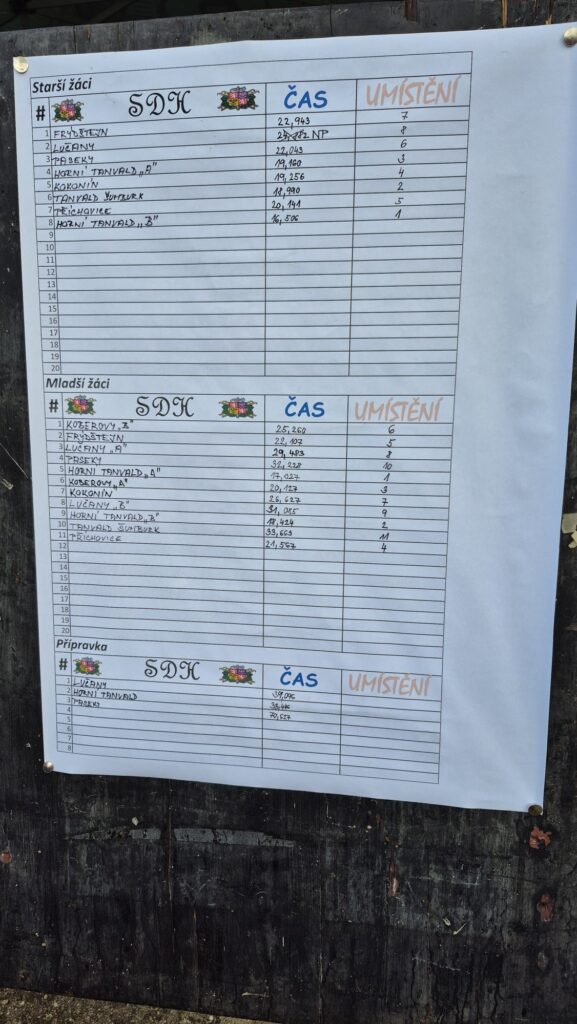 Starší žáci
# SDH ČAS UMÍSTĚNÍ
1 FRÝDŠTEJN 22,943 7
2 LUČANY NP 8
3 PASEKY 22,043 6
4 HORNÍ TANVALD „A" 19,160 3
5 KOKONÍN 19,256 4
6 TANVALD ŠUMBURK 18,990 2
7 PŘÍCHOVICE 20,141 5
8 HORNÍ TANVALD „B" 16,506 1
9
10
11
12
13
14
15
16
17
18
19
20
Mladší žáci
# SDH ČAS UMÍSTĚNÍ
1 KOBEROVY „B" 25,260 6
2 FRÝDŠTEJN 22,107 5
3 LUČANY „A" 29,483 8
4 PASEKY 32,228 10
5 HORNÍ TANVALD „A" 17,027 1
6 KOBEROVY „A" 20,127 3
7 KOKONÍN 26,627 7
8 LUČANY „B" 31,085 9
9 HORNÍ TANVALD „B" 18,424 2
10 TANVALD ŠUMBURK 33,663 11
11 PŘÍCHOVICE 21,567 4
12
13
14
15
16
17
18
19
20
Přípravka
# SDH ČAS UMÍSTĚNÍ
1 LUČANY
2 HORNÍ TANVALD
3 PASEKY 70,627
4
5
6
7
8